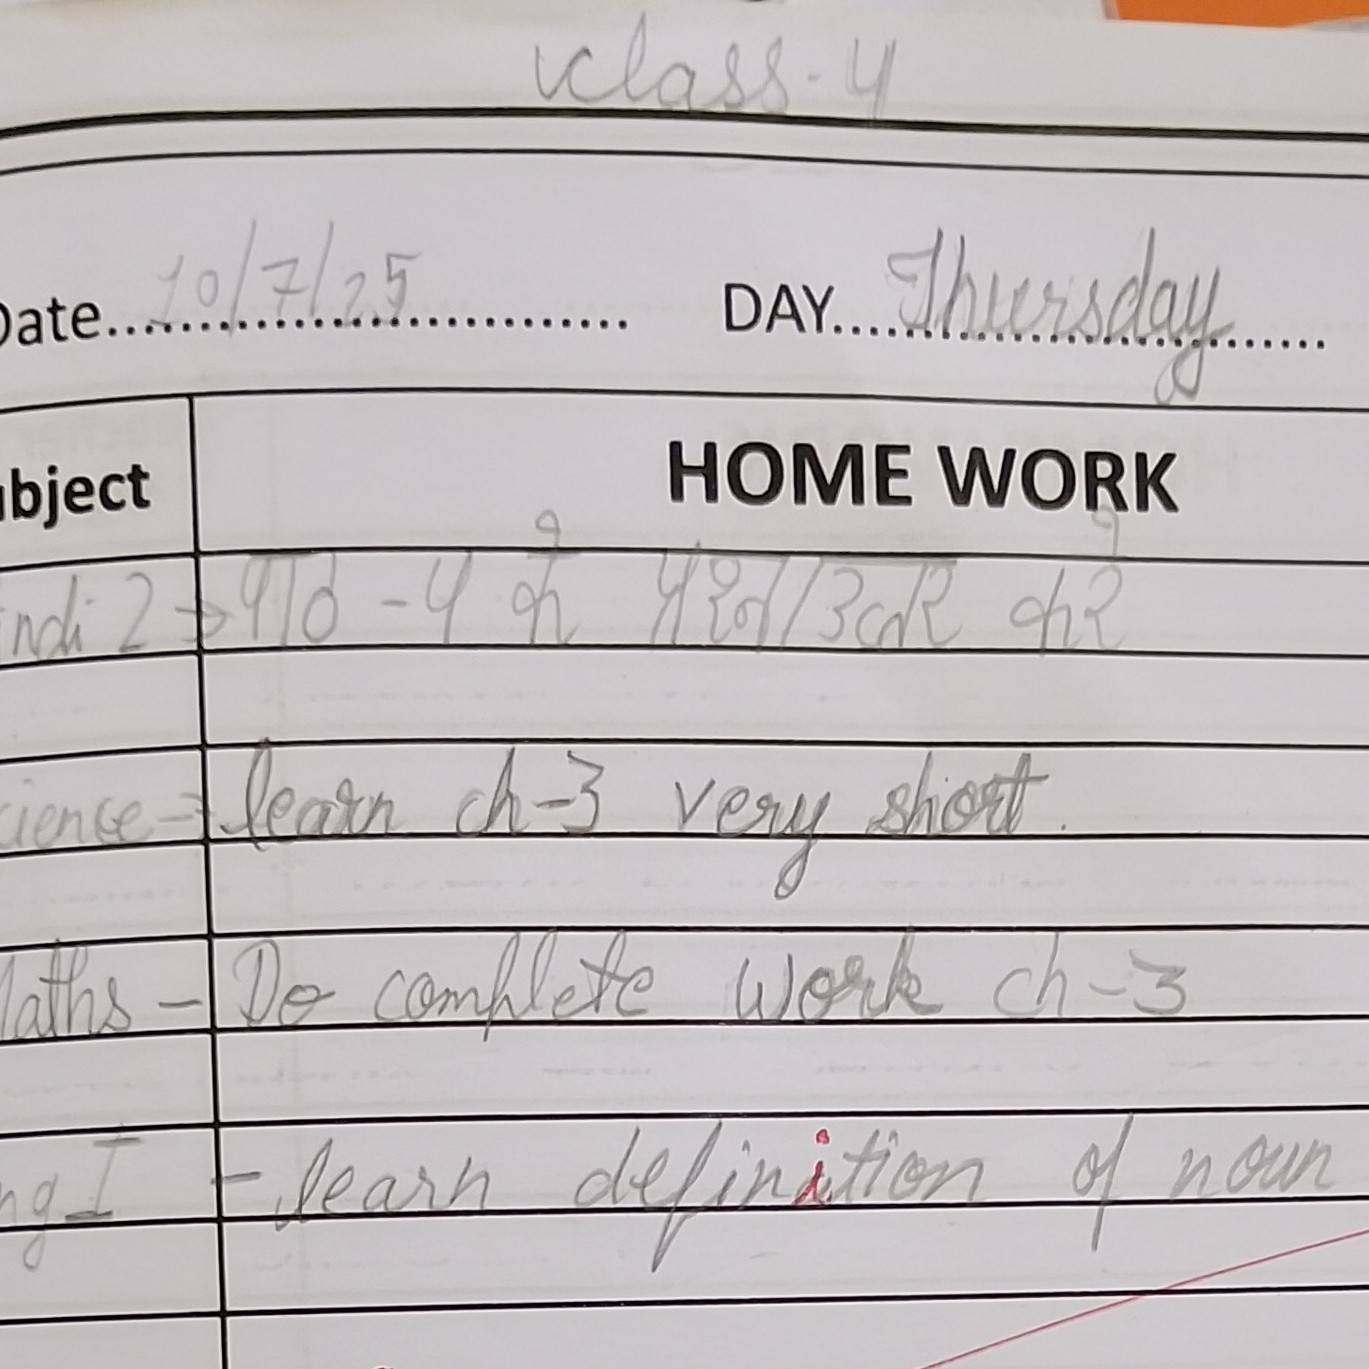 Class-4
Date 10/7/25 DAY Thursday
ubject HOME WORK
indi 2 → पाठ - 4 के प्रश्न/उत्तर करे
cience → learn ch-3 very short.
Maths - Do complete work ch-3
ng I - learn definition of noun